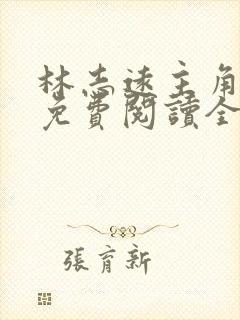 林志遠主角
免費閱讀全
張育新